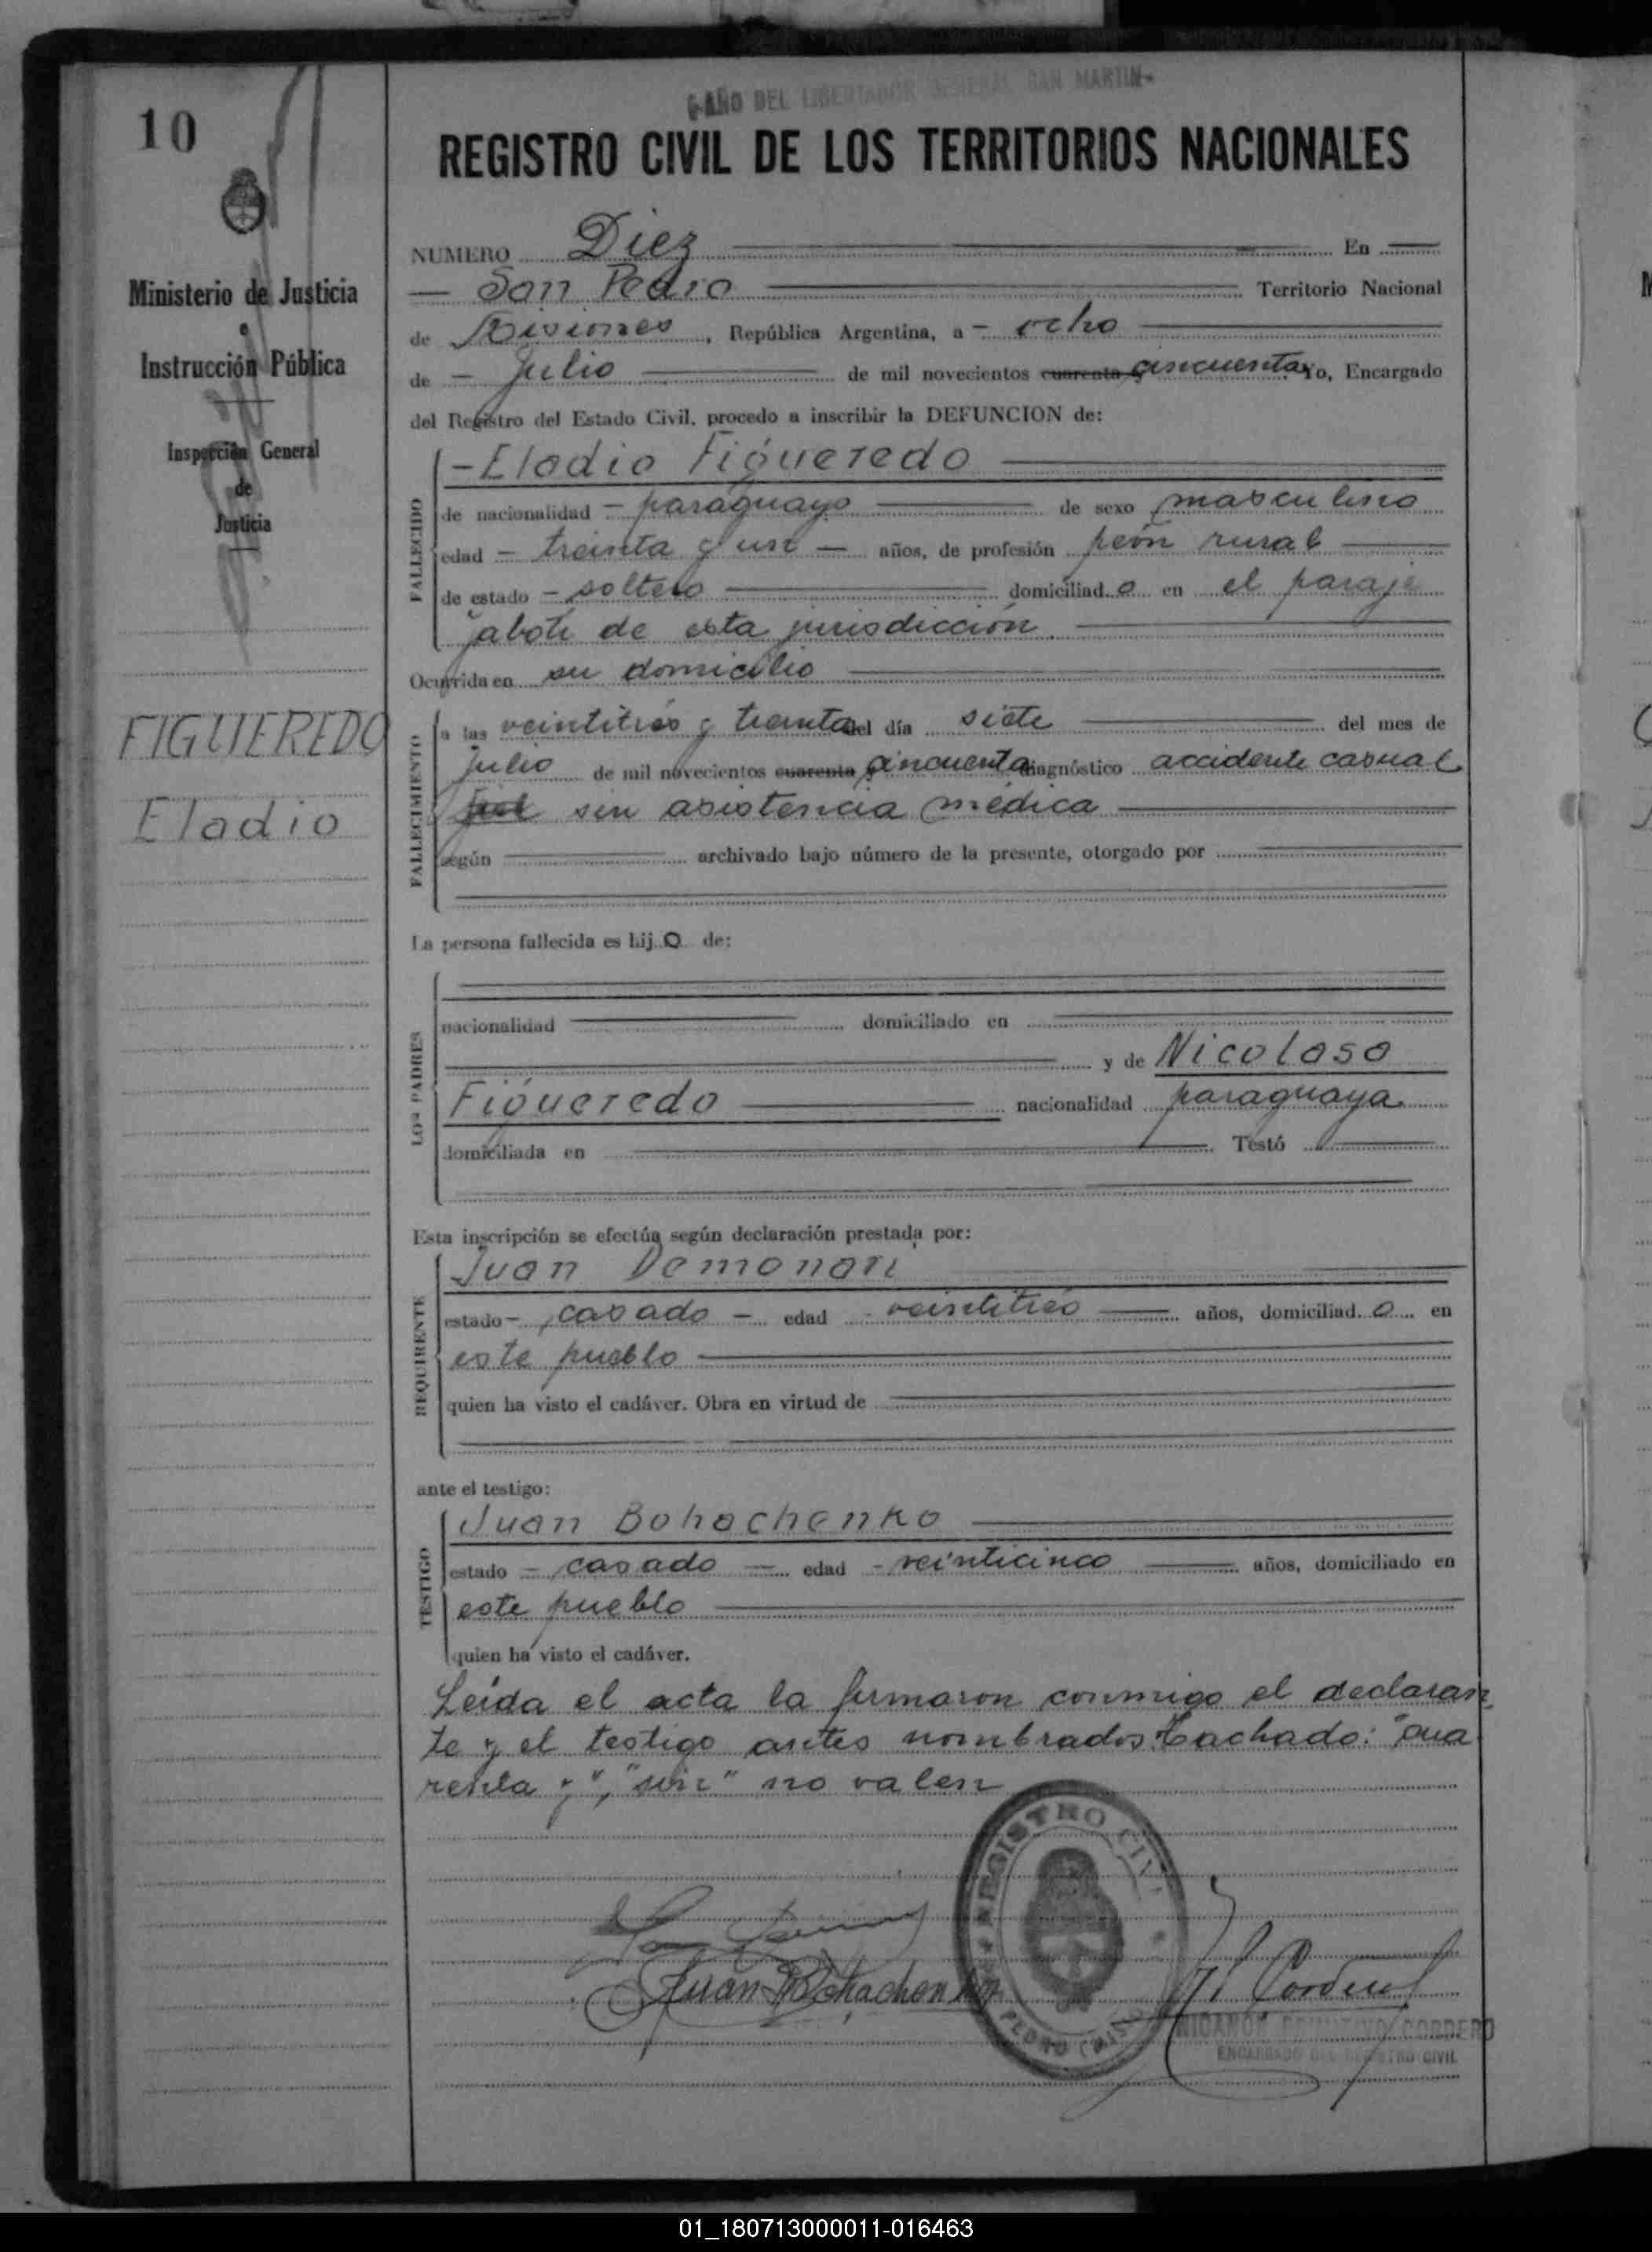 "AÑO DEL LIBERTADOR GENERAL SAN MARTIN"
10
REGISTRO CIVIL DE LOS TERRITORIOS NACIONALES
Ministerio de Justicia
e
Instrucción Pública
Inspección General
de
Justicia
FIGUEREDO
Eladio
NUMERO Diez En
San Pedro Territorio Nacional
de Misiones, República Argentina, a - ocho
de - Julio de mil novecientos cuarenta y cincuenta Yo, Encargado
del Registro del Estado Civil, procedo a inscribir la DEFUNCION de:
FALLECIDO
- Eladio Figueredo
de nacionalidad - paraguayo de sexo masculino
edad - treinta y un - años, de profesión peón rural
de estado - soltero domiciliad o en el paraje
jabotí de esta jurisdicción.
Ocurrida en su domicilio
FALLECIMIENTO
a las veintitrés y treinta del día siete del mes de
Julio de mil novecientos cuarenta y cincuenta diagnóstico accidente casual
sin asistencia médica
según archivado bajo número de la presente, otorgado por
La persona fallecida es hij o de:
LOS PADRES
nacionalidad domiciliado en
y de Nicolasa
Figueredo nacionalidad paraguaya
domiciliada en Testó
Esta inscripción se efectúa según declaración prestada por:
REQUIRENTE
Juan
estado - casado - edad veintitrés años, domiciliad o en
este pueblo
quien ha visto el cadáver. Obra en virtud de
ante el testigo:
TESTIGO
Juan Bohachenko
estado - casado - edad - veinticinco años, domiciliado en
este pueblo
quien ha visto el cadáver.
Leída el acta la firmaron conmigo el declaran
te y el testigo antes nombrados Tachado: "cua
renta y", "sin" no valen
Juan Bohachenko
REGISTRO CIVIL
PEDRO
N. Cordero
NICANOR CORDERO
ENCARGADO DEL REGISTRO CIVIL
01_180713000011-016463